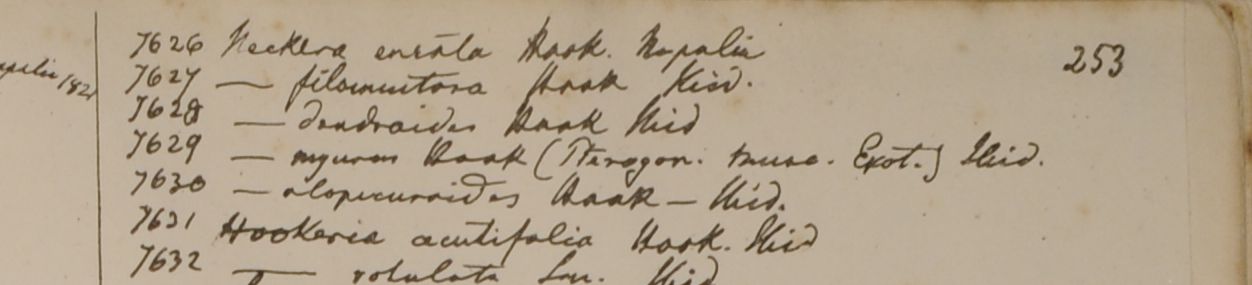 7626 Neckera ensata Hook. Napalia
253
7627 — filamentosa Hook Ibid.
7628 — dendroides Hook Ibid
7629 — myuros Hook (Pterogon. Musc. Exot.) Ibid.
7630 — alopecuroides Hook — Ibid.
7631 Hookeria acutifolia Hook. Ibid
7632 — rotulata Sm. Ibid